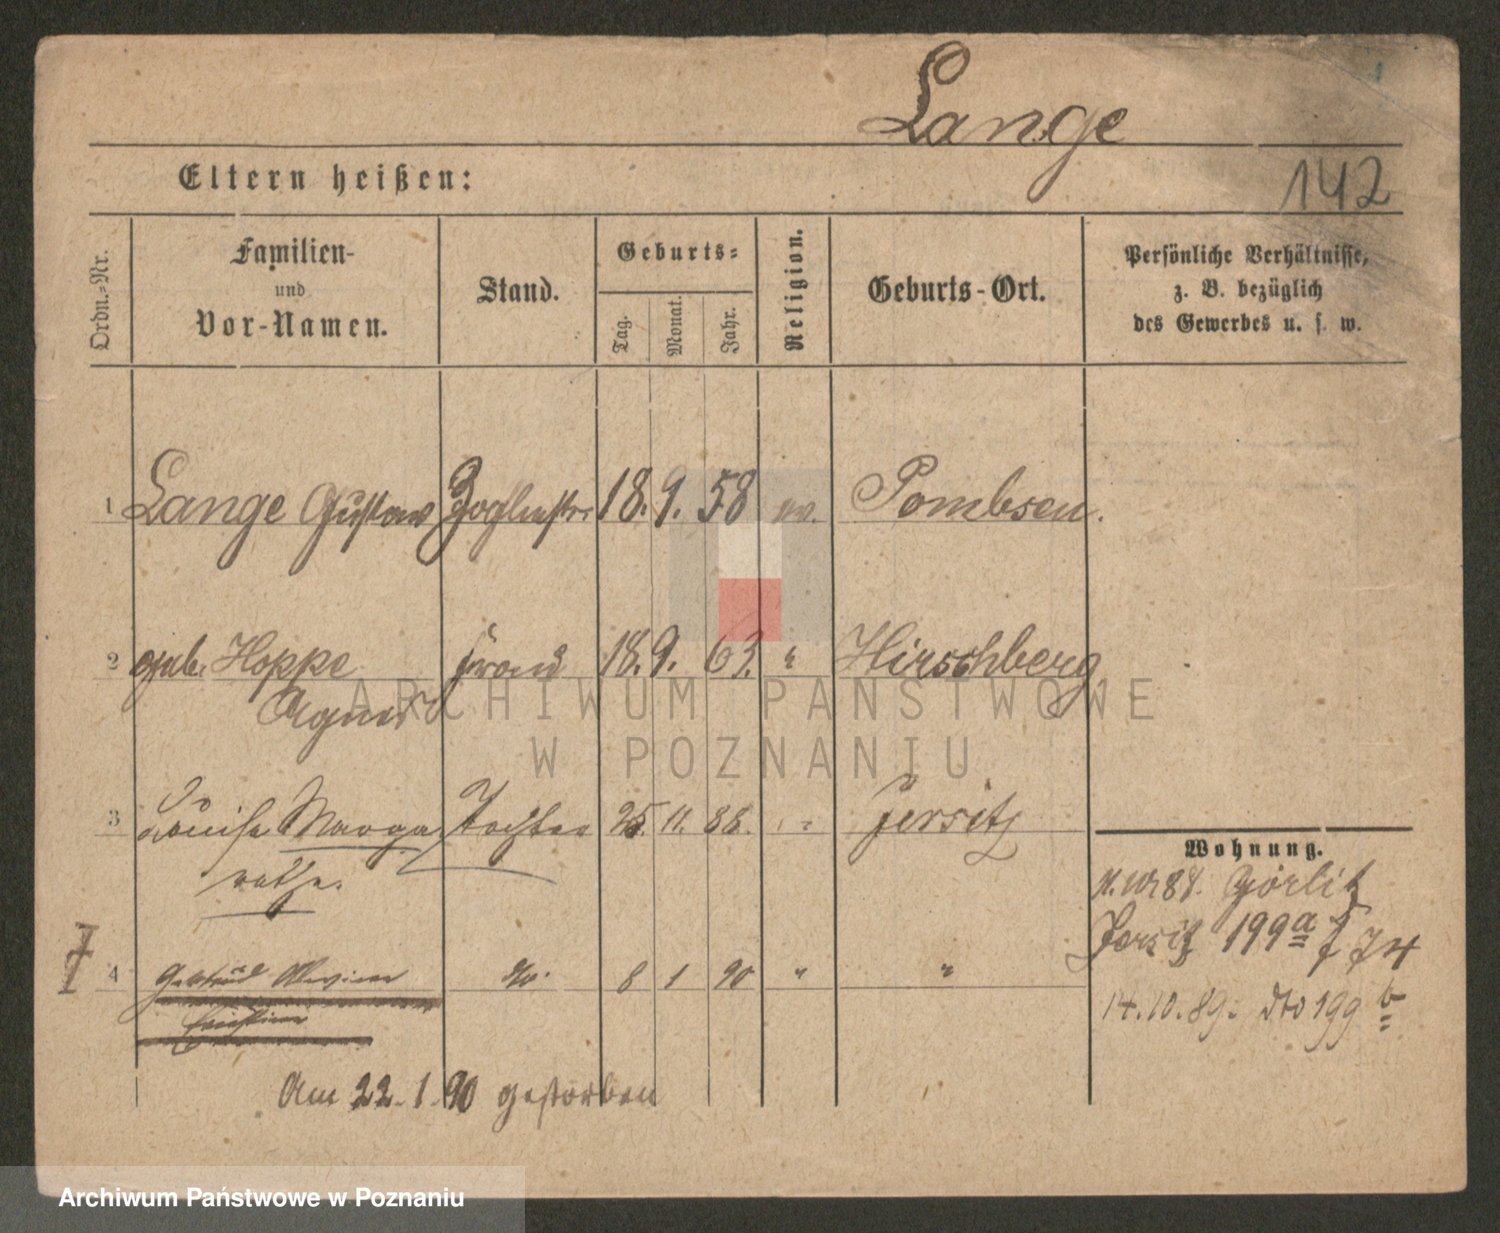 Lange
Eltern heißen:
142
Ordn.-Nr.
Familien-
und
Vor-Namen.
Stand.
Geburts-
Tag.
Monat.
Jahr.
Religion.
Geburts-Ort.
Persönliche Verhältnisse,
z. B. bezüglich
des Gewerbes u. s. w.
1 Lange Gustav 18. 9. 58 ev. Pombsen.
2 geb. Hoppe Frau 18. 9. 63. " Hirschberg
Agnes
ARCHIWUM PAŃSTWOWE
W POZNANIU
3 Louise Marga Tochter 25. 11. 88. Jersitz
rethe.
Wohnung.
88. Görlitz
Jersitz 199a
74
4 Gertrud do. 8 1 90 " "
14.10.89. dto 199 b
Am 22.1.90 gestorben
Archiwum Państwowe w Poznaniu